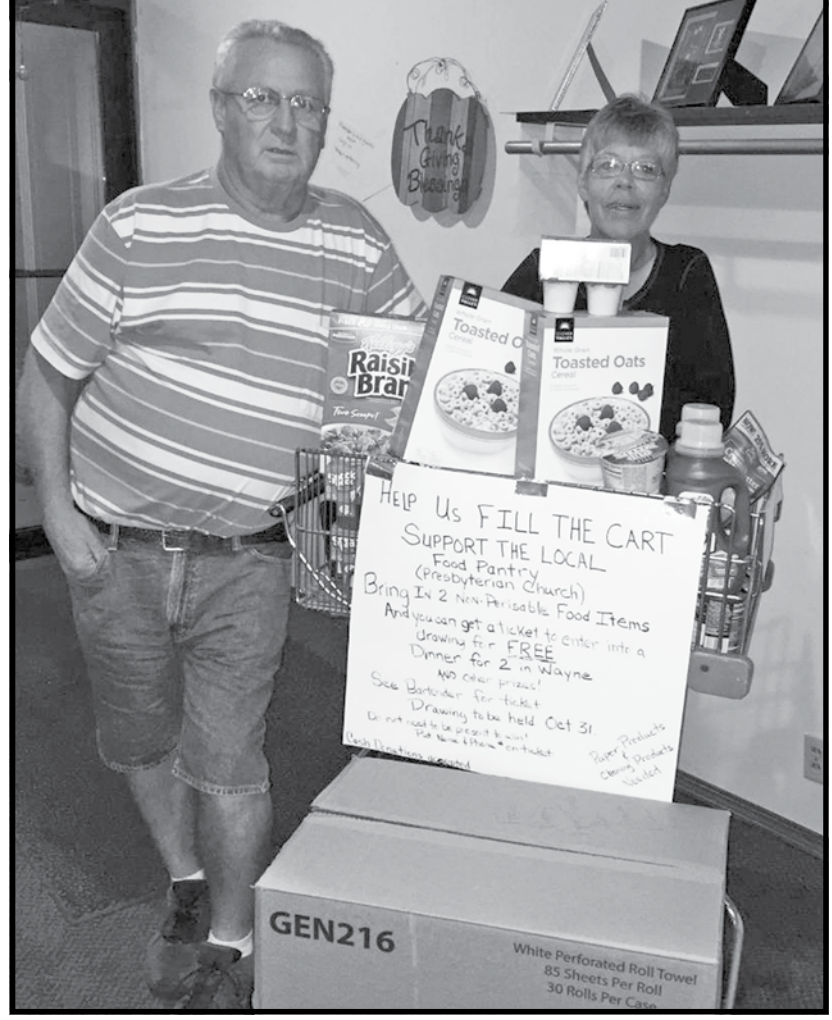 Thank
Giving
Blessings
Raisin
Bran
Two Scoops!
Whole Grain
Toasted O
Cereal
CLOVER
VALLEY
Whole Grain
Toasted Oats
Cereal
HELP US FILL THE CART
SUPPORT THE LOCAL
Food Pantry
(Presbyterian Church)
Bring IN 2 Non-Perisable Food Items
And you can get a ticket to enter into a
drawing for FREE
Dinner for 2 in Wayne
AND other prizes!
See Bartender for ticket
Drawing to be held Oct 31.
Do not need to be present to win!
Put Name & Phone # on ticket
Cash Donations accepted
Paper Products
&
Cleaning Products
Needed
GEN216
White Perforated Roll Towel
85 Sheets Per Roll
30 Rolls Per Case